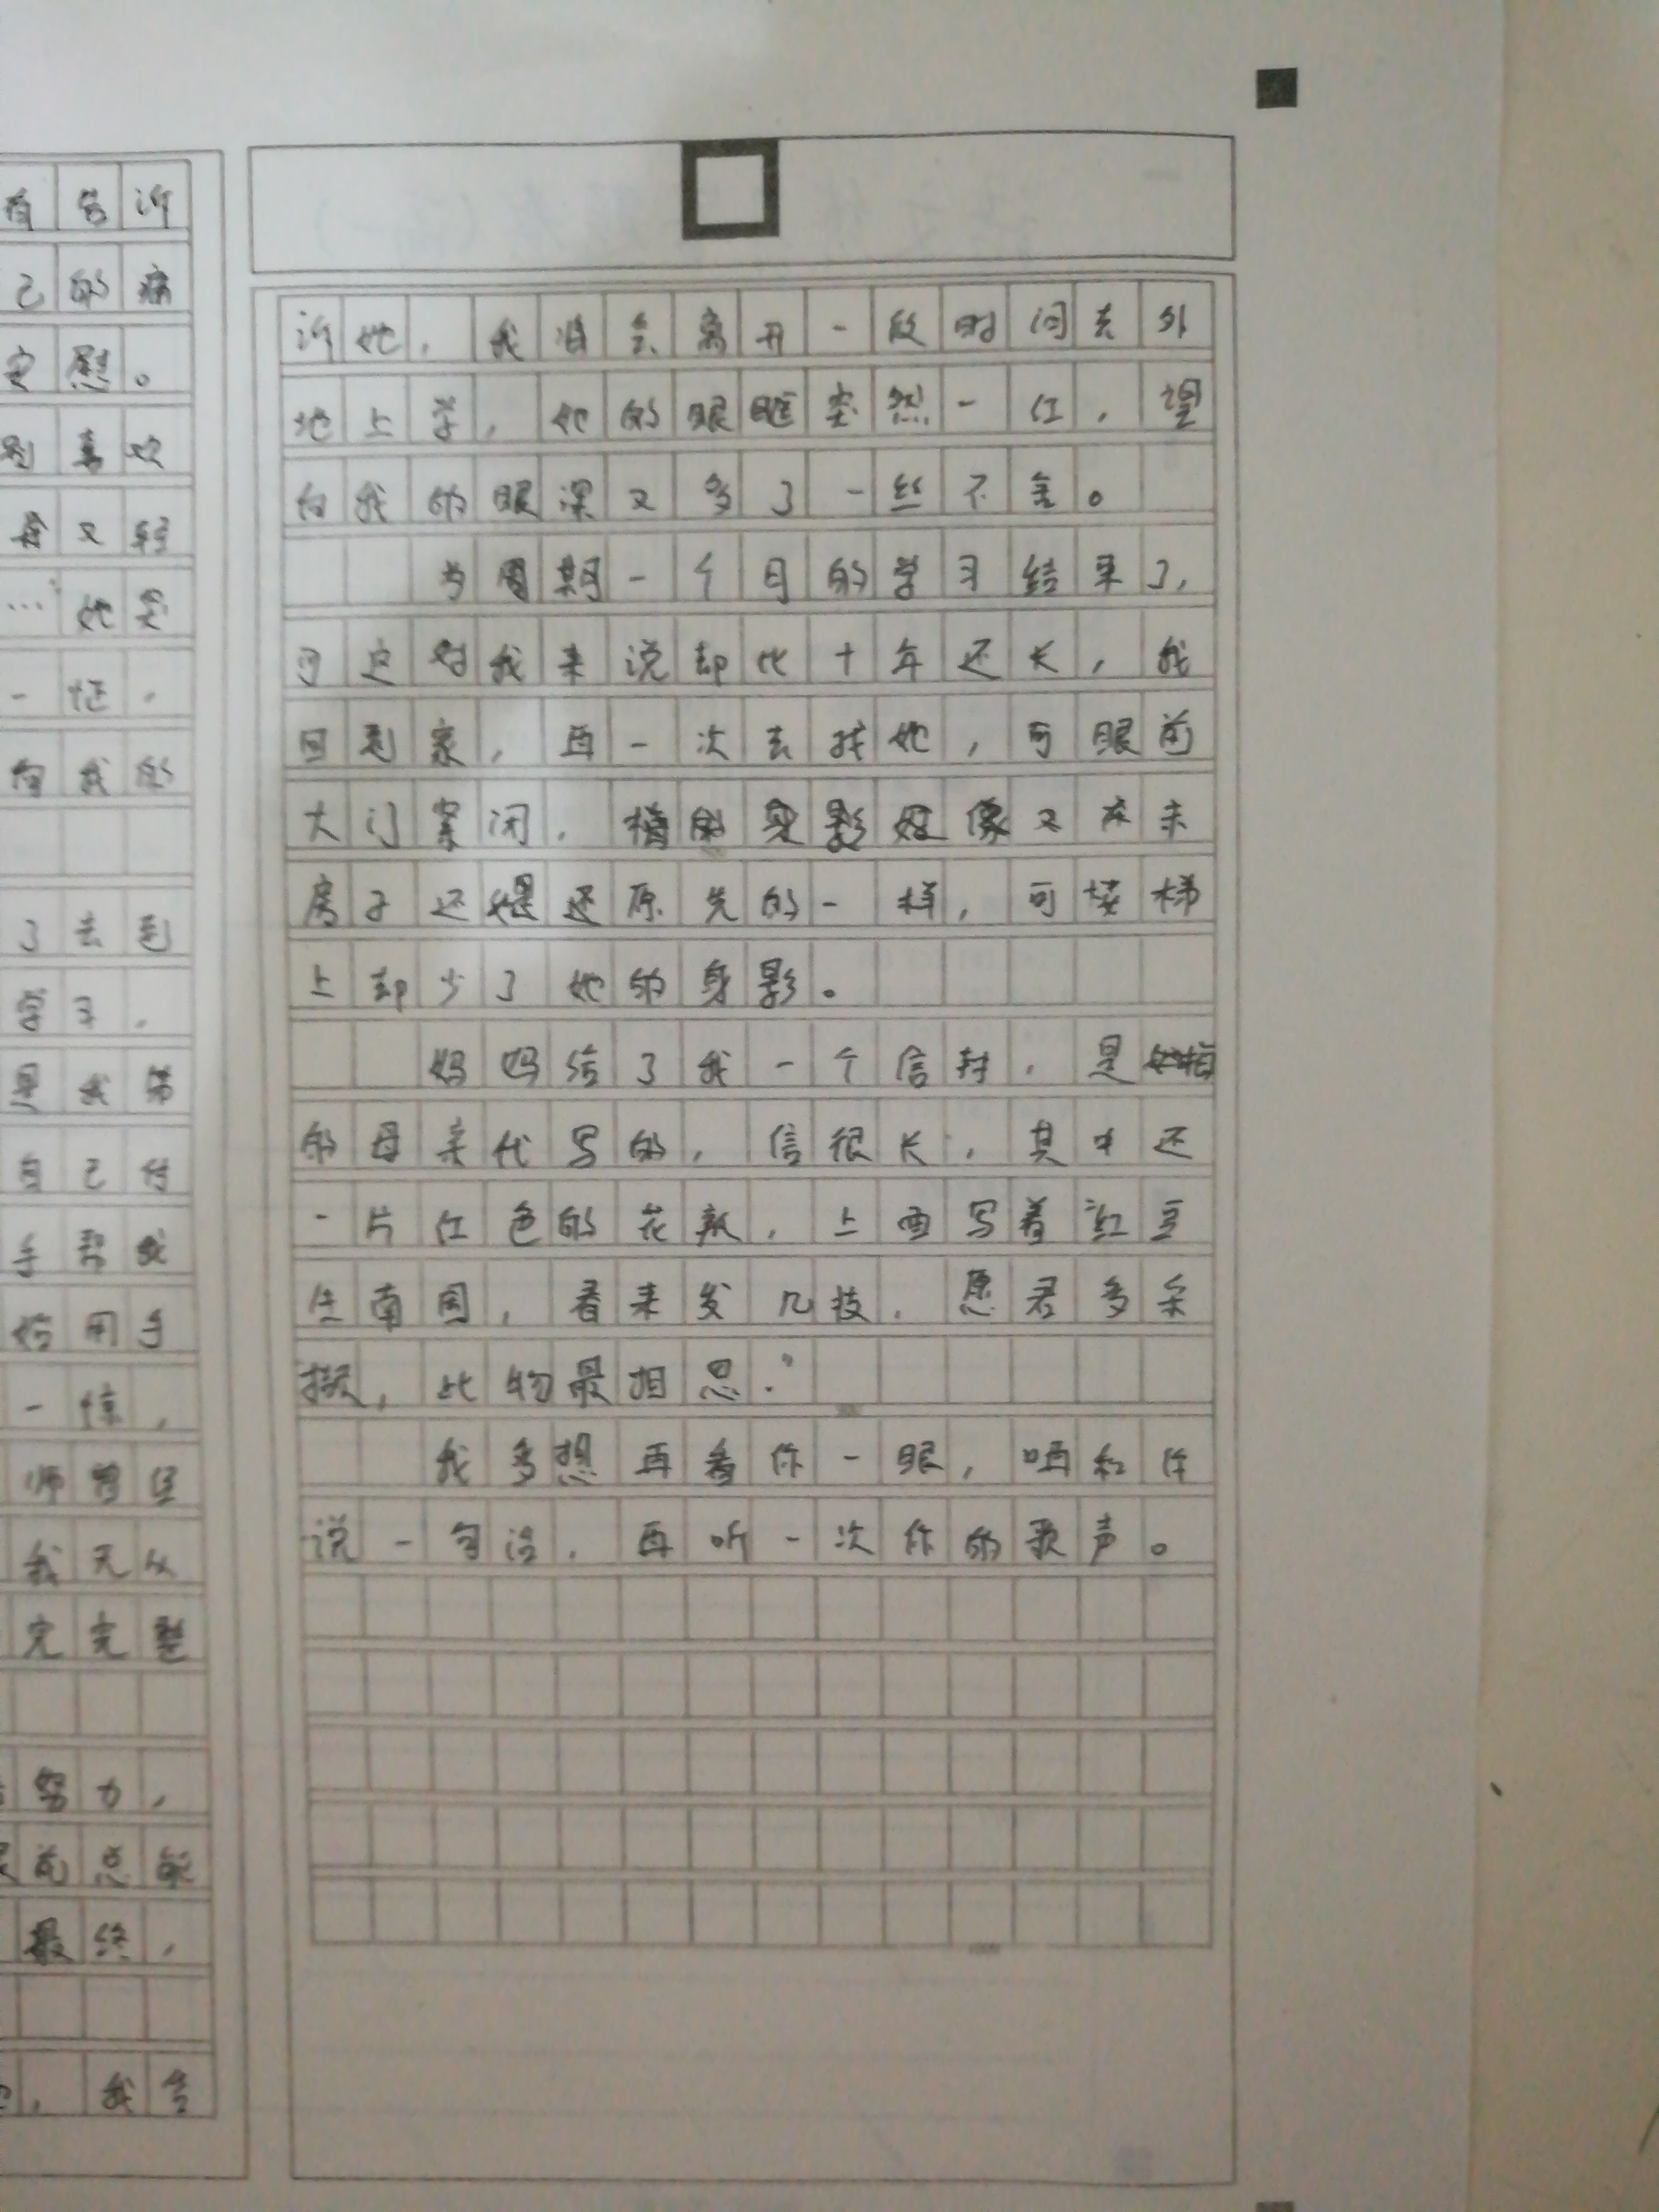 有告诉
己的病
安慰。
别喜欢
又轻
…她突
一怔,
向我的
了去到
学习,
是我第
自己传
手帮我
给用手
一惊,
师曾经
我无从
完完整
努力,
前总能
最终,
,我告
诉她,我将会离开一段时间去外
地上学,她的眼眶突然一红,望
向我的眼深又多了一丝不舍。
当周期一个月的学习结束了,
可这对我来说却比十年还长,我
回到家,再一次去找她,可眼前
大门紧闭,楼的身影好像又在未
房子还是还原先的一样,可楼梯
上却少了她的身影。
妈妈给了我一个信封,是她
的母亲代写的,信很长,其中还
一片红色的花瓣,上面写着“红豆
生南国,春来发几枝,愿君多采
撷,此物最相思.”
我多想再看你一眼,再和你
说一句话,再听一次你的歌声。